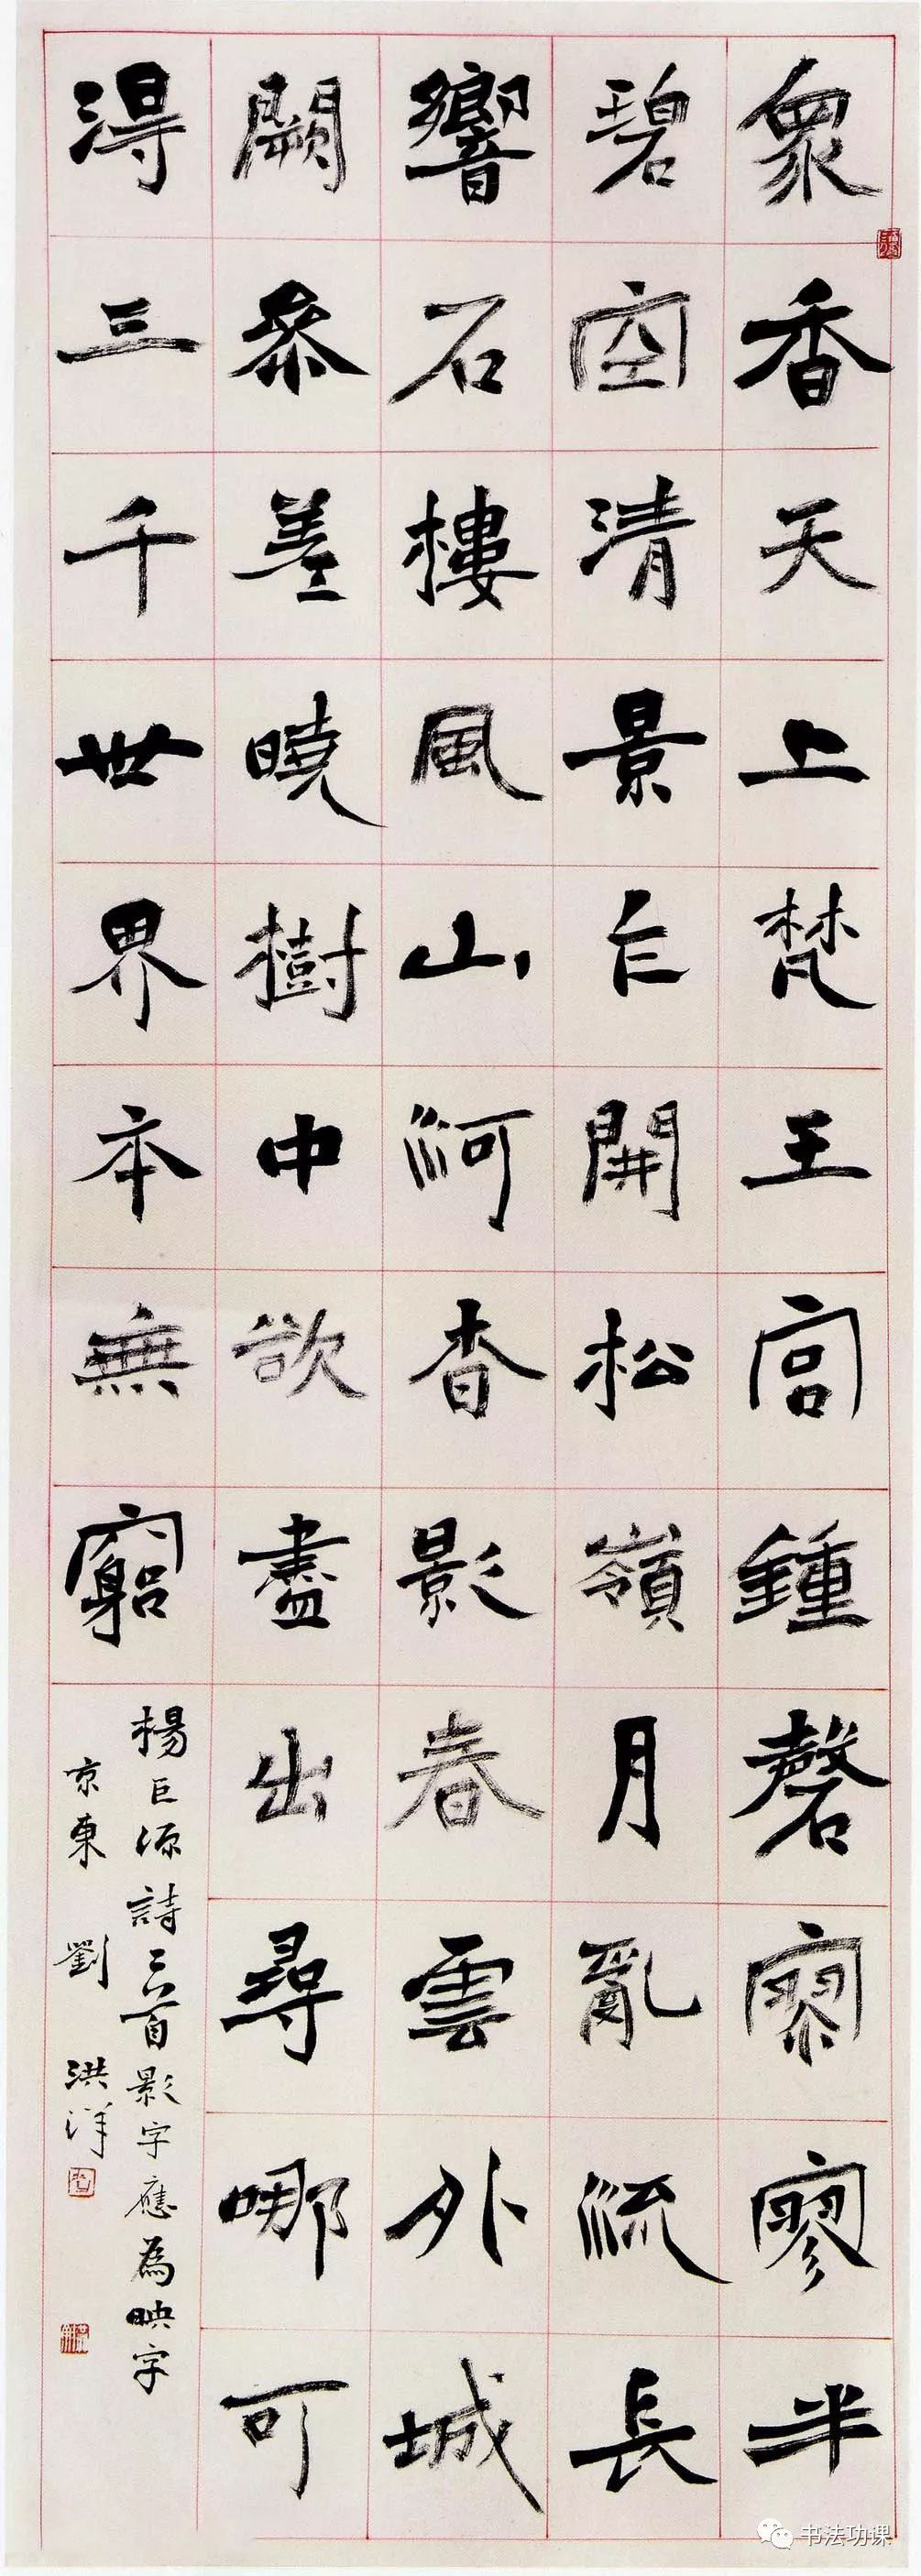 衆香天上梵王宮鍾磬寥寥半
碧空清景乍開松嶺月亂流長
響石樓風山河杳影春雲外城
闕參差曉樹中欲盡出尋哪可
得三千世界本無窮
楊巨源詩一首影字應為映字
京東劉洪洋
书法功课